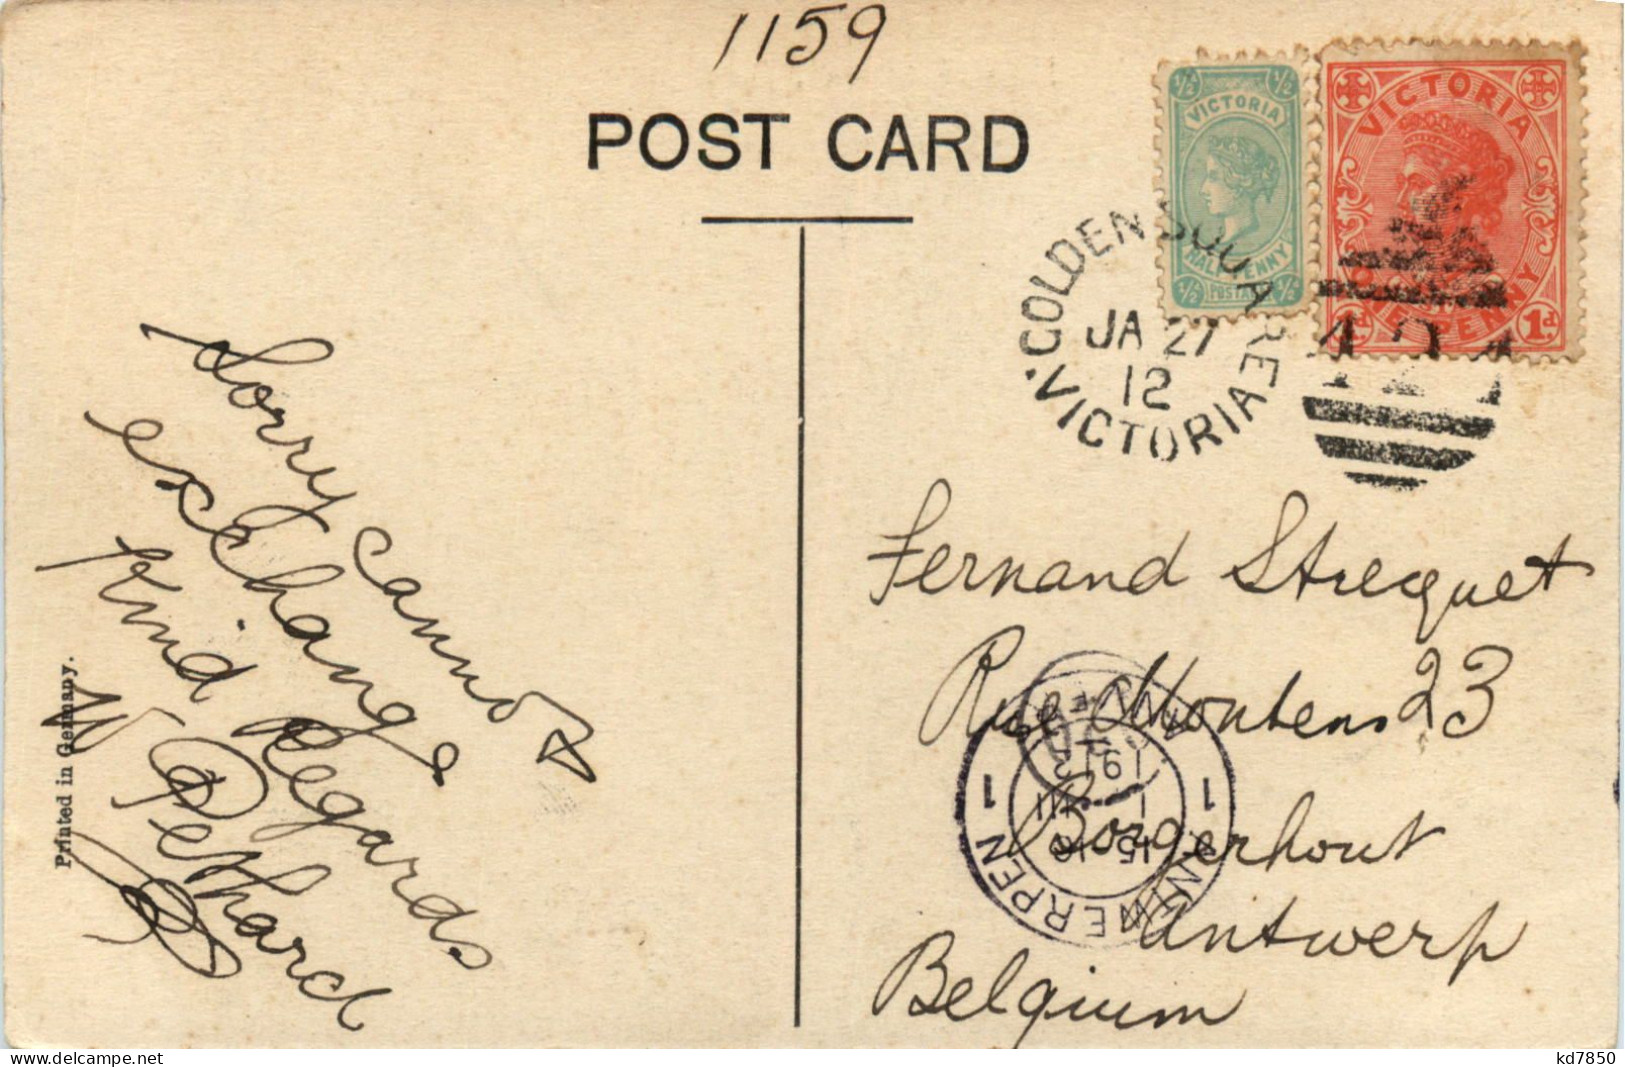 1159
POST CARD
½ ½
VICTORIA
HALF PENNY
½ ½
VICTORIA
ONE PENNY
1d. 1d.
GOLDEN SQUARE
JA 27
12
VICTORIA
Sorry cannot
exchange
Kind Regards
W Pethard
Printed in Germany.
Fernand Strecquet
Rue Montens 23
Borgerhout
Antwerp
Belgium
ANTWERPEN
1 1
1912
delcampe.net
kd7850